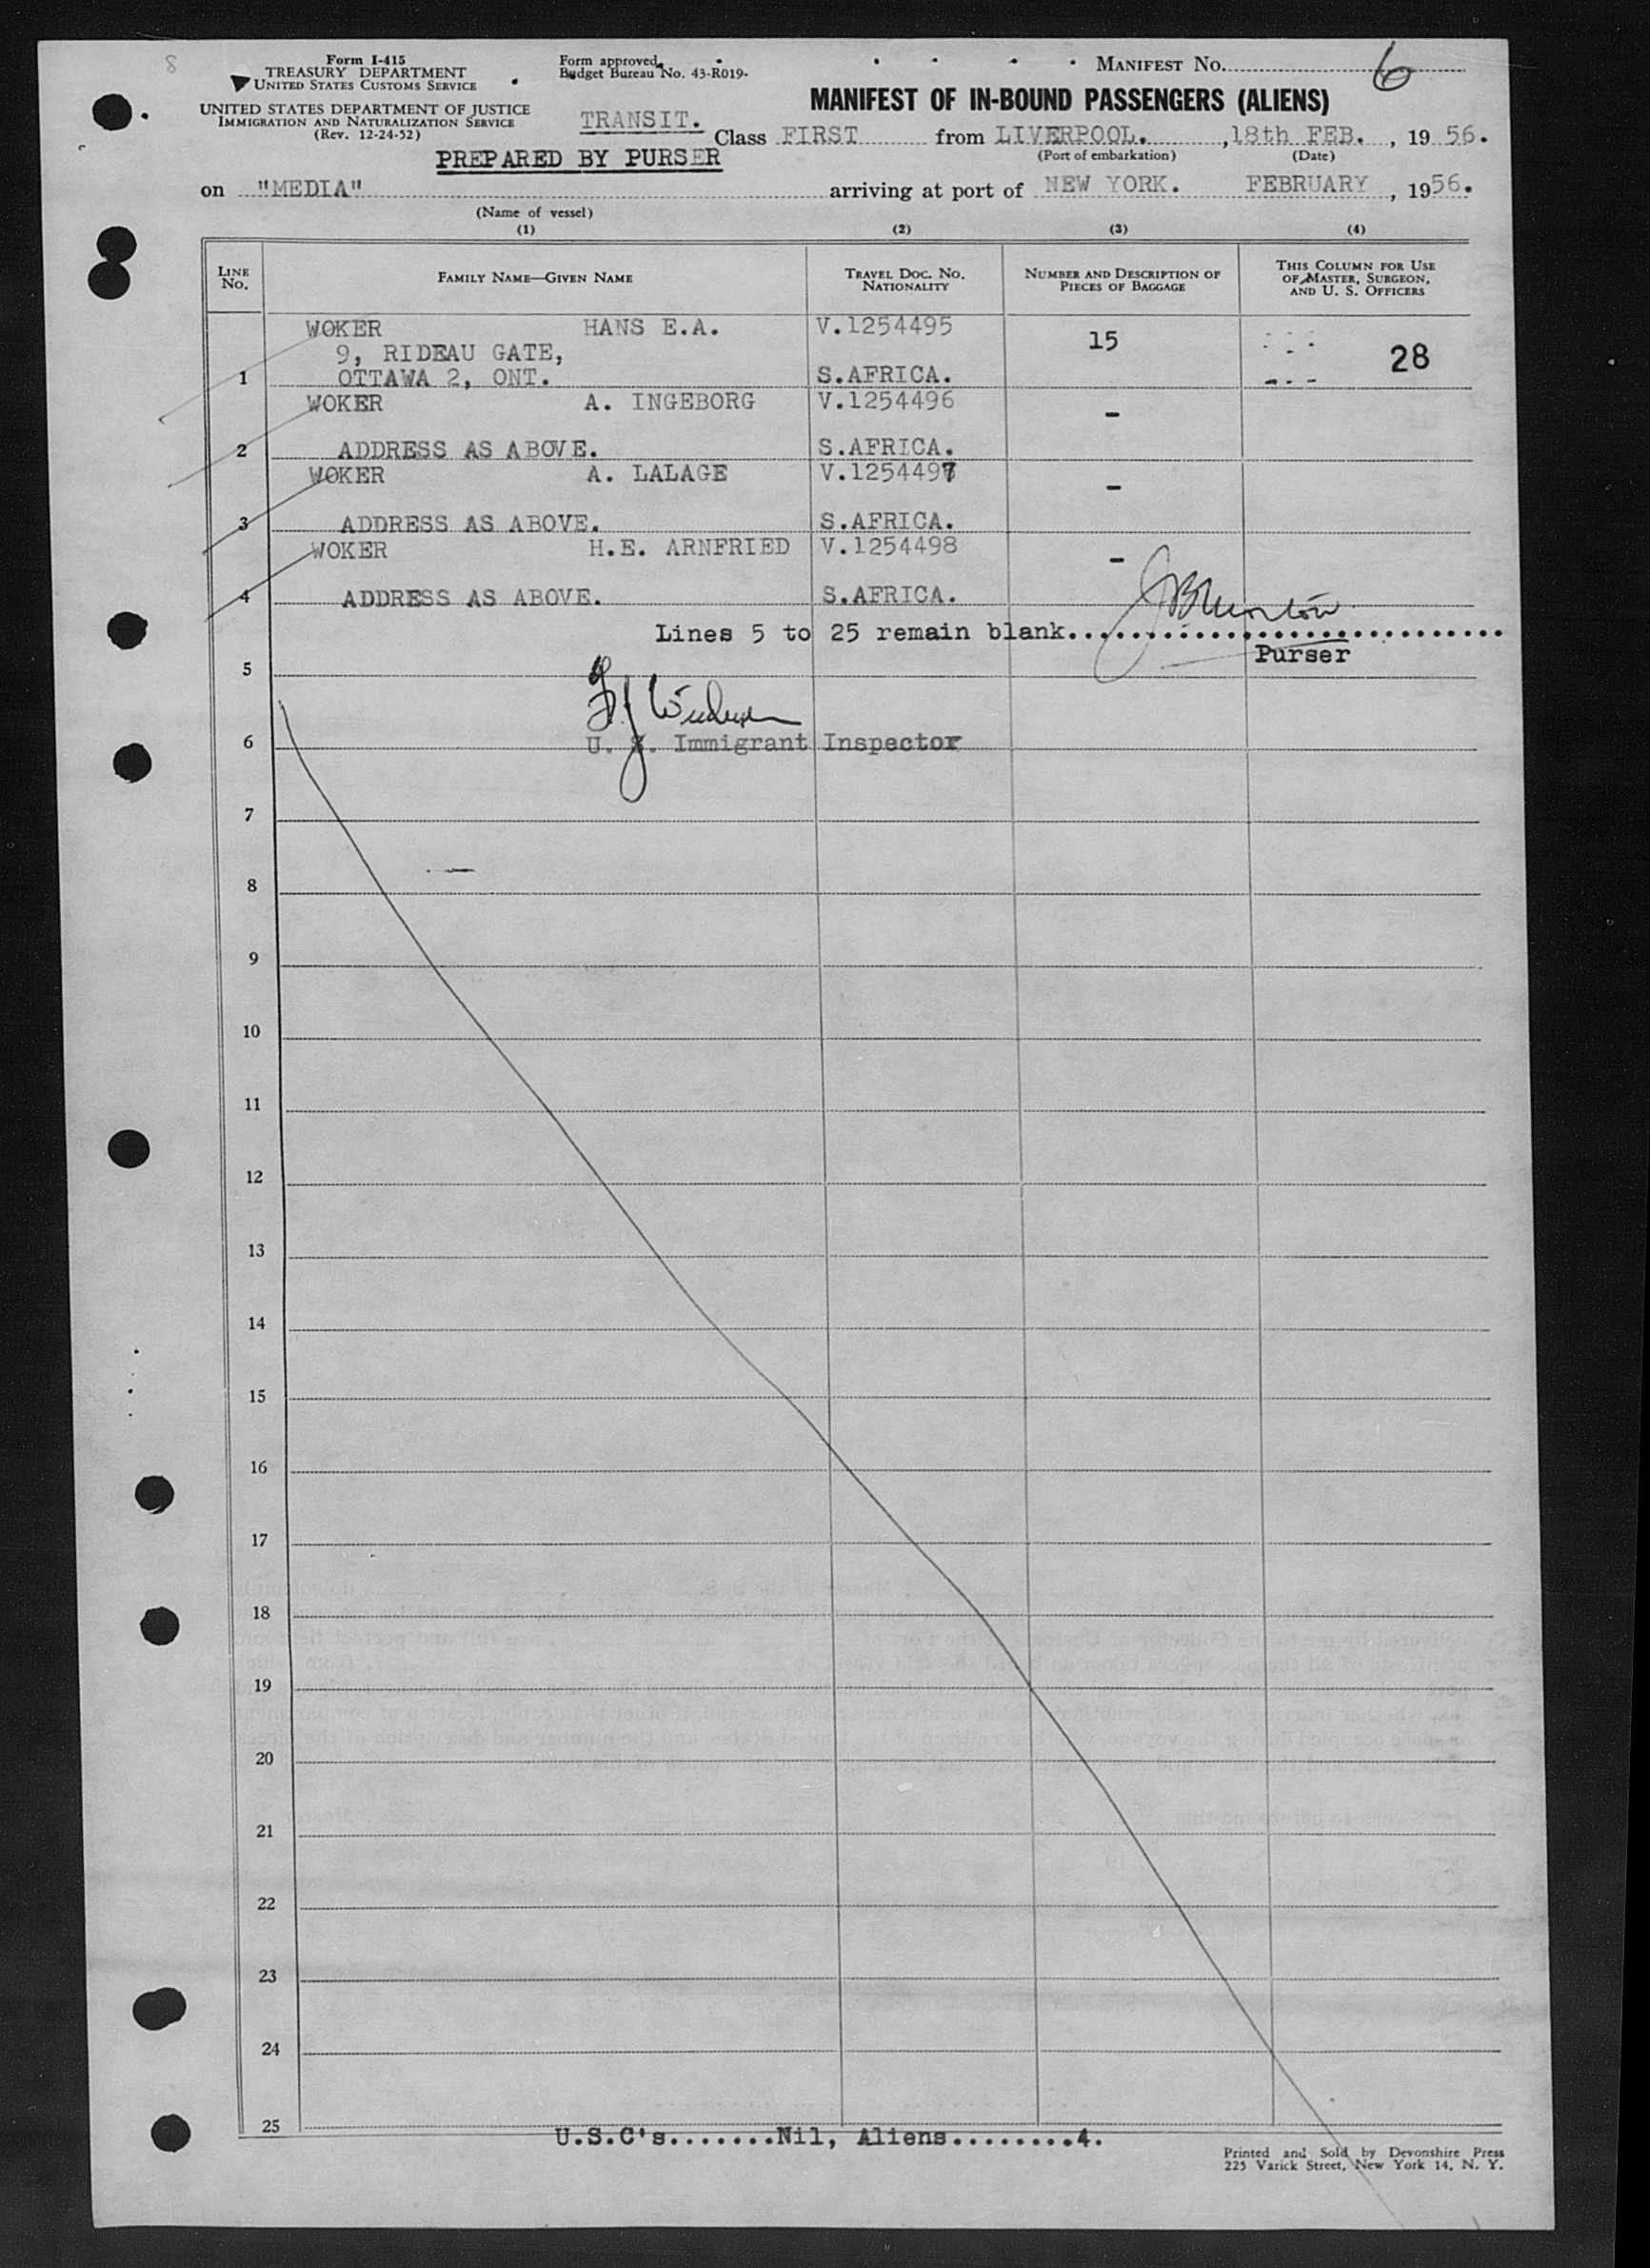 8
Form I-415
TREASURY DEPARTMENT
UNITED STATES CUSTOMS SERVICE
UNITED STATES DEPARTMENT OF JUSTICE
IMMIGRATION AND NATURALIZATION SERVICE
(Rev. 12-24-52)
Form approved.
Budget Bureau No. 43-R019-
MANIFEST NO. 6
MANIFEST OF IN-BOUND PASSENGERS (ALIENS)
TRANSIT. Class FIRST from LIVERPOOL. , 18th FEB. , 19 56.
(Port of embarkation) (Date)
PREPARED BY PURSER
on "MEDIA" arriving at port of NEW YORK. FEBRUARY , 1956.
(Name of vessel)
(1) (2) (3) (4)
LINE NO. FAMILY NAME—GIVEN NAME TRAVEL DOC. NO. NATIONALITY NUMBER AND DESCRIPTION OF PIECES OF BAGGAGE THIS COLUMN FOR USE OF MASTER, SURGEON, AND U. S. OFFICERS
WOKER HANS E.A. V.1254495 15
9, RIDEAU GATE, 28
1 OTTAWA 2, ONT. S.AFRICA.
WOKER A. INGEBORG V.1254496 -
2 ADDRESS AS ABOVE. S.AFRICA.
WOKER A. LALAGE V.1254497 -
3 ADDRESS AS ABOVE. S.AFRICA.
WOKER H.E. ARNFRIED V.1254498 -
4 ADDRESS AS ABOVE. S.AFRICA.
Lines 5 to 25 remain blank..............................
Purser
5
6 U. S. Immigrant Inspector
7
8
9
10
11
12
13
14
15
16
17
18
19
20
21
22
23
24
25
U.S.C's.......Nil, Aliens........4.
Printed and Sold by Devonshire Press
225 Varick Street, New York 14, N. Y.